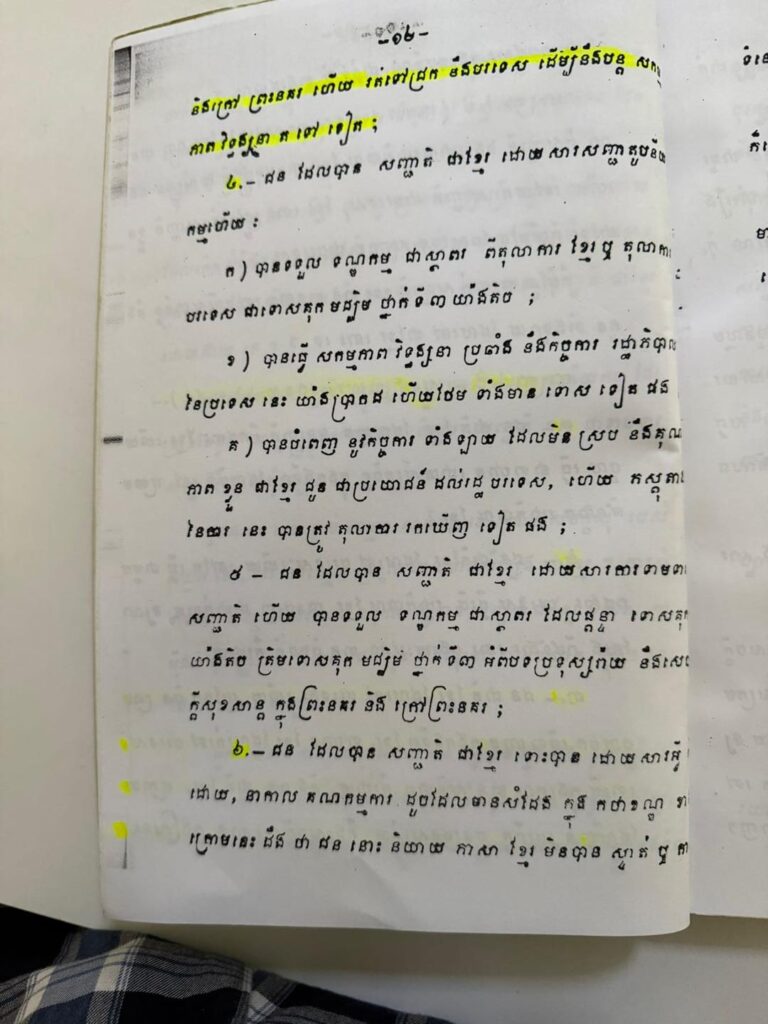 -១២-
និងក្រៅ ព្រះនគរ ហើយ រត់ទៅជ្រក នឹងបរទេស ដើម្បីនឹងបន្ត សកម្ម
ភាព វិទ្ធង្សនា ត ទៅ ទៀត ;
៤.- ជន ដែលបាន សញ្ជាតិ ជាខ្មែរ ដោយសារសញ្ជាតូបនីយ
កម្មហើយ :
ក ) បានទទួល ទណ្ឌកម្ម ជាស្ថាពរ ពីតុលាការ ខ្មែរ ឬ តុលាការ
បរទេស ជាទោសគុក មជ្ឈិម ថ្នាក់ ទី៣ យ៉ាងតិច ;
ខ ) បានធ្វើ សកម្មភាព វិទ្ធង្សនា ប្រឆាំង នឹងកិច្ចការ រដ្ឋាភិបាល
នៃប្រទេស នេះ យ៉ាងប្រាកដ ហើយថែម ទាំងមាន ទោស ទៀត ផង
គ ) បានបំពេញ នូវកិច្ចការ ទាំងឡាយ ដែលមិន ស្រប នឹងគុណ
ភាព ខ្លួន ជាខ្មែរ ជូន ជាប្រយោជន៍ ដល់រដ្ឋ បរទេស, ហើយ ភស្តុតាង
នៃការ នេះ បានត្រូវ តុលាការ រកឃើញ ទៀត ផង ;
៥ - ជន ដែលបាន សញ្ជាតិ ជាខ្មែរ ដោយសារការទាមទារ
សញ្ជាតិ ហើយ បានទទួល ទណ្ឌកម្ម ជាស្ថាពរ ដែលផ្តន្ទា ទោសគុក
យ៉ាងតិច ត្រឹមទោសគុក មជ្ឈិម ថ្នាក់ ទី៣ អំពីបទប្រទុស្សរ៉ាយ នឹងសេច
ក្តីសុខសាន្ត ក្នុងព្រះនគរ និង ក្រៅព្រះនគរ ;
៦.- ជន ដែលបាន សញ្ជាតិ ជាខ្មែរ ទោះបាន ដោយសារអ្វី
ដោយ, នាកាល គណកម្មការ ដូចដែលមានសំដែង ក្នុង កថាខណ្ឌ
ក្រោមនេះ ដឹង ថា ជន នោះ និយាយ ភាសា ខ្មែរ មិនបាន ស្ទាត់ ឬ